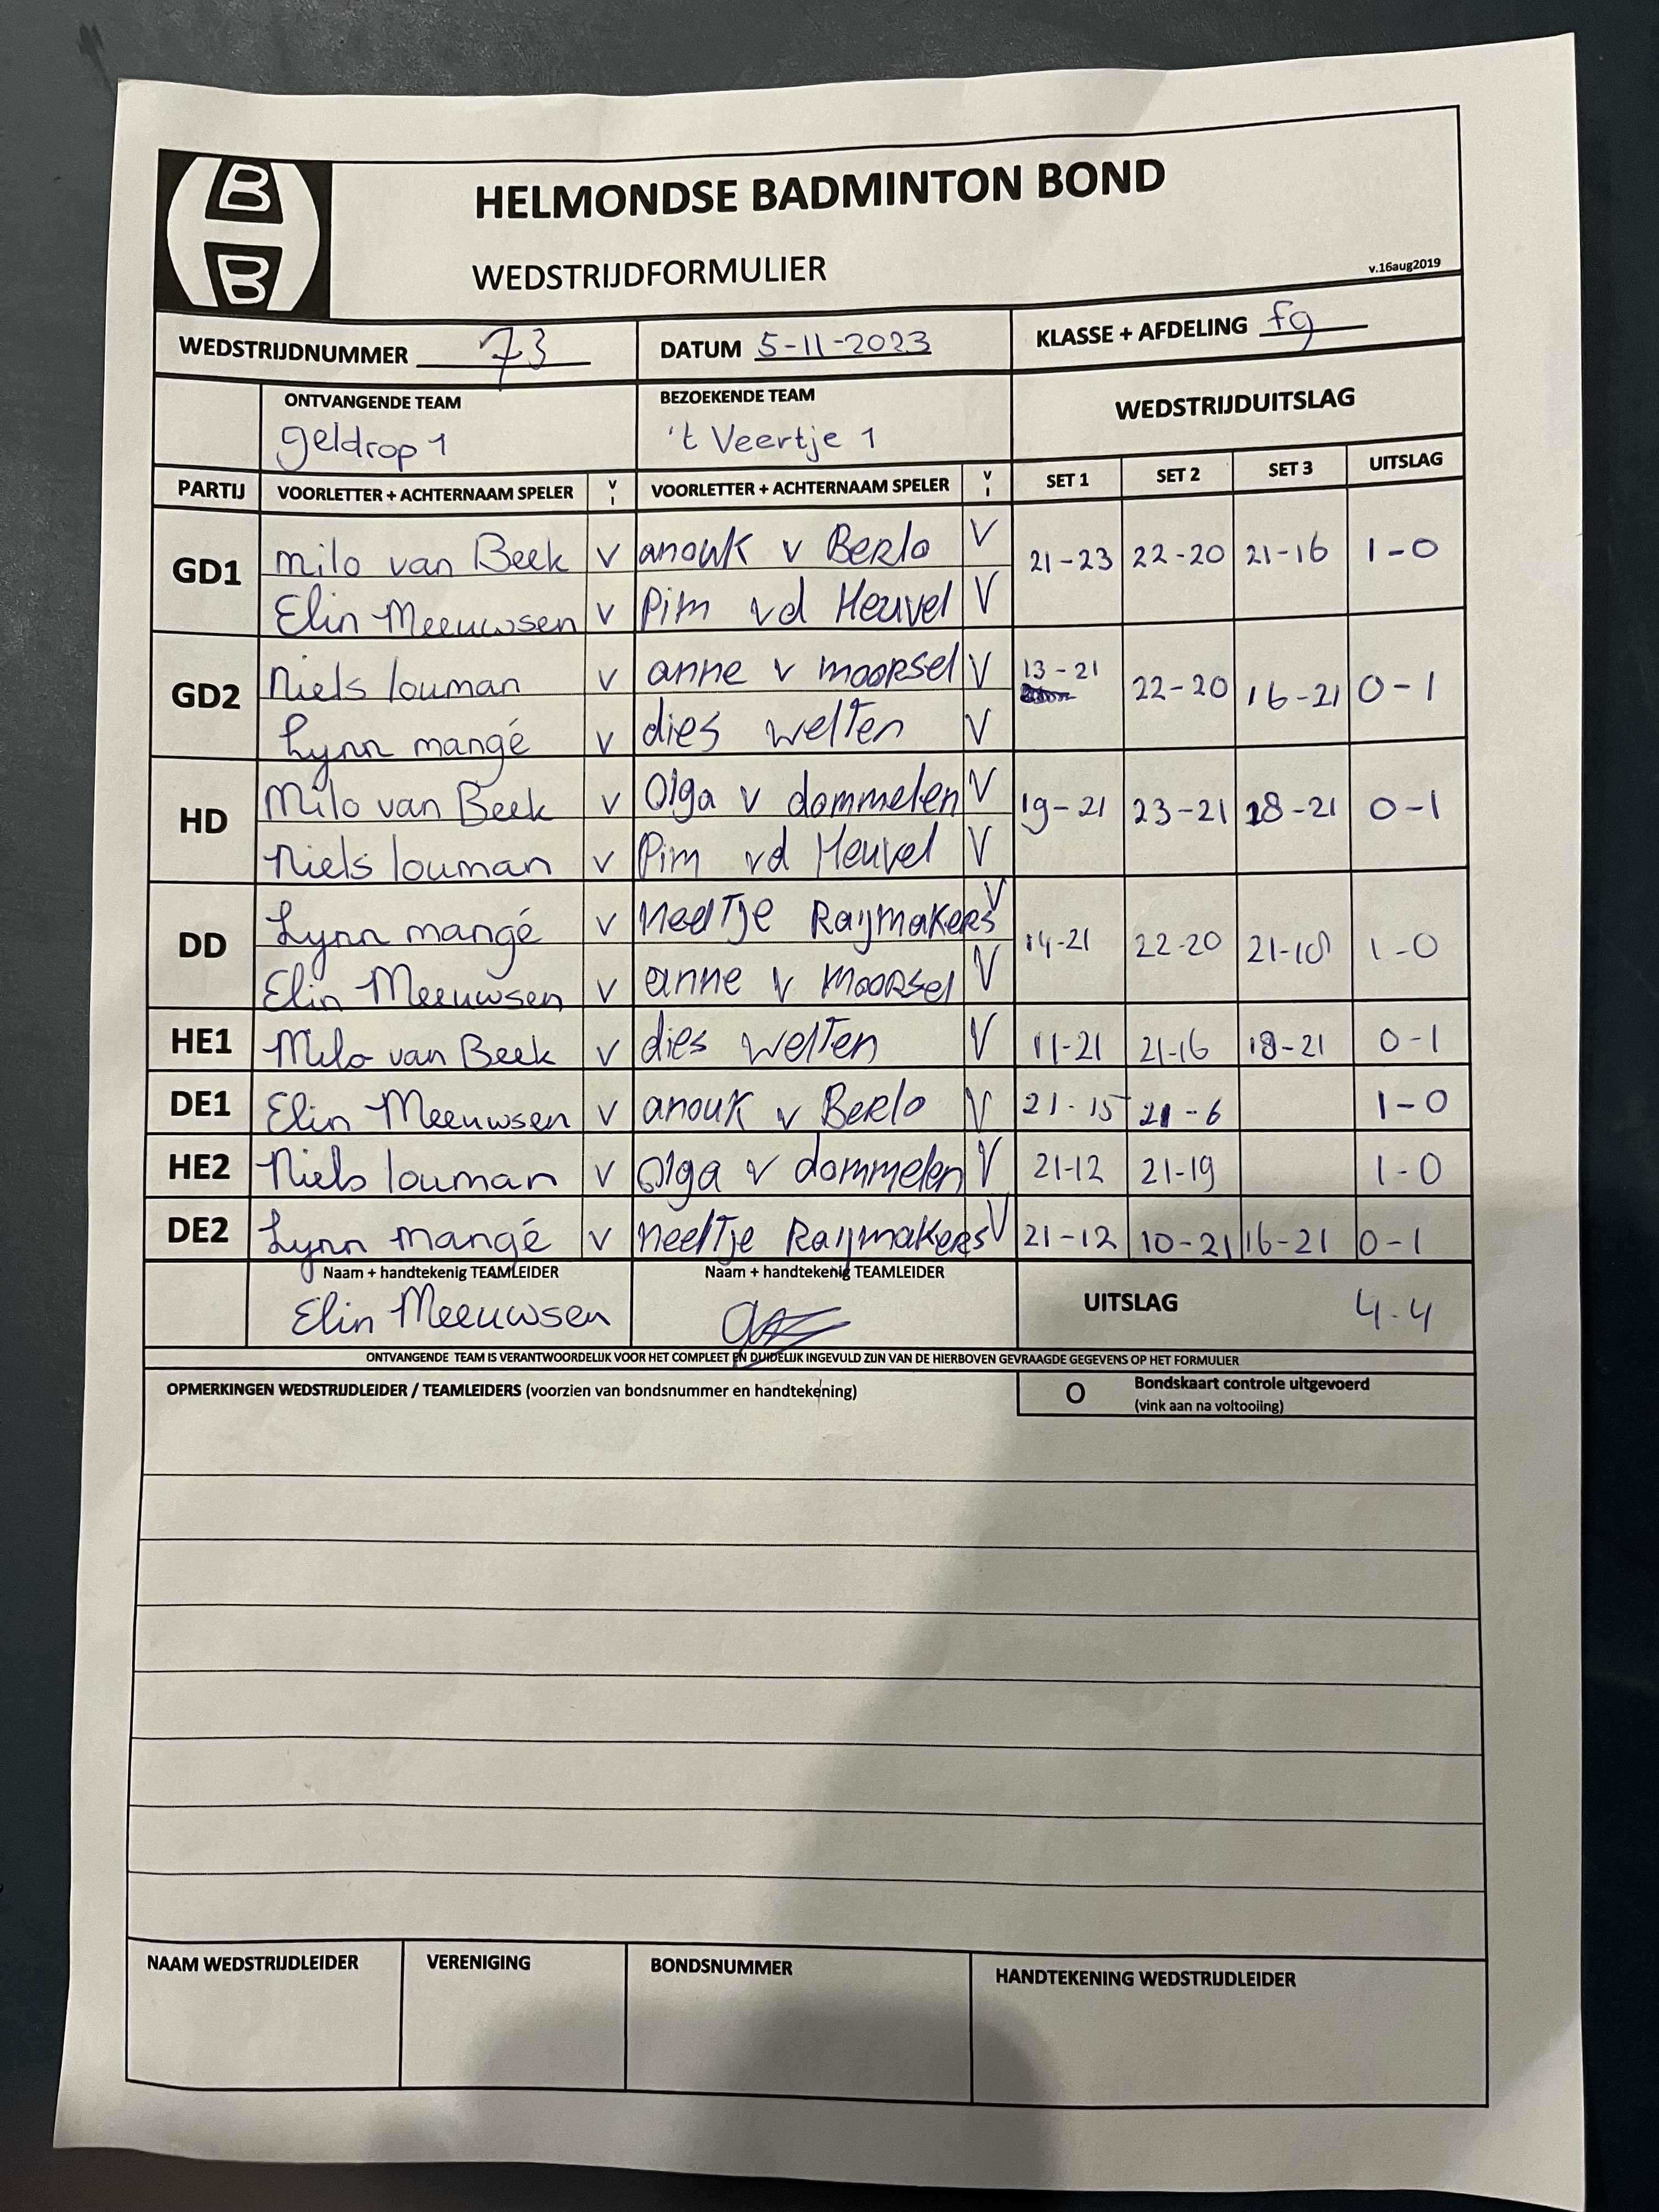 B
B
HELMONDSE BADMINTON BOND
WEDSTRIJDFORMULIER
v.16aug2019
WEDSTRIJDNUMMER 73 DATUM 5-11-2023 KLASSE + AFDELING fg
ONTVANGENDE TEAM BEZOEKENDE TEAM WEDSTRIJDUITSLAG
geldrop 1 't Veertje 1
PARTIJ VOORLETTER + ACHTERNAAM SPELER V I VOORLETTER + ACHTERNAAM SPELER V I SET 1 SET 2 SET 3 UITSLAG
GD1 milo van Beek V anouk v Berlo V 21-23 22-20 21-16 1-0
Elin Meeuwsen V Pim vd Heuvel V
GD2 Niels louman V anne v moorsel V 13-21 22-20 16-21 0-1
Lynn mangé V dies welten V
HD Milo van Beek V Olga v dommelen V 19-21 23-21 18-21 0-1
Niels louman V Pim vd Heuvel V
DD Lynn mangé V Neeltje Raijmakers V 14-21 22-20 21-18 1-0
Elin Meeuwsen V anne v Moorsel V
HE1 Milo van Beek V dies welten V 11-21 21-16 18-21 0-1
DE1 Elin Meeuwsen V anouk v Berlo V 21-15 21-6 1-0
HE2 Niels louman V Olga v dommelen V 21-12 21-19 1-0
DE2 Lynn mangé V Neeltje Raijmakers V 21-12 10-21 16-21 0-1
Naam + handtekenig TEAMLEIDER Naam + handtekenig TEAMLEIDER UITSLAG 4-4
Elin Meeuwsen
ONTVANGENDE TEAM IS VERANTWOORDELIJK VOOR HET COMPLEET EN DUIDELIJK INGEVULD ZIJN VAN DE HIERBOVEN GEVRAAGDE GEGEVENS OP HET FORMULIER
OPMERKINGEN WEDSTRIJDLEIDER / TEAMLEIDERS (voorzien van bondsnummer en handtekening) O Bondskaart controle uitgevoerd
(vink aan na voltooiing)
NAAM WEDSTRIJDLEIDER VERENIGING BONDSNUMMER HANDTEKENING WEDSTRIJDLEIDER